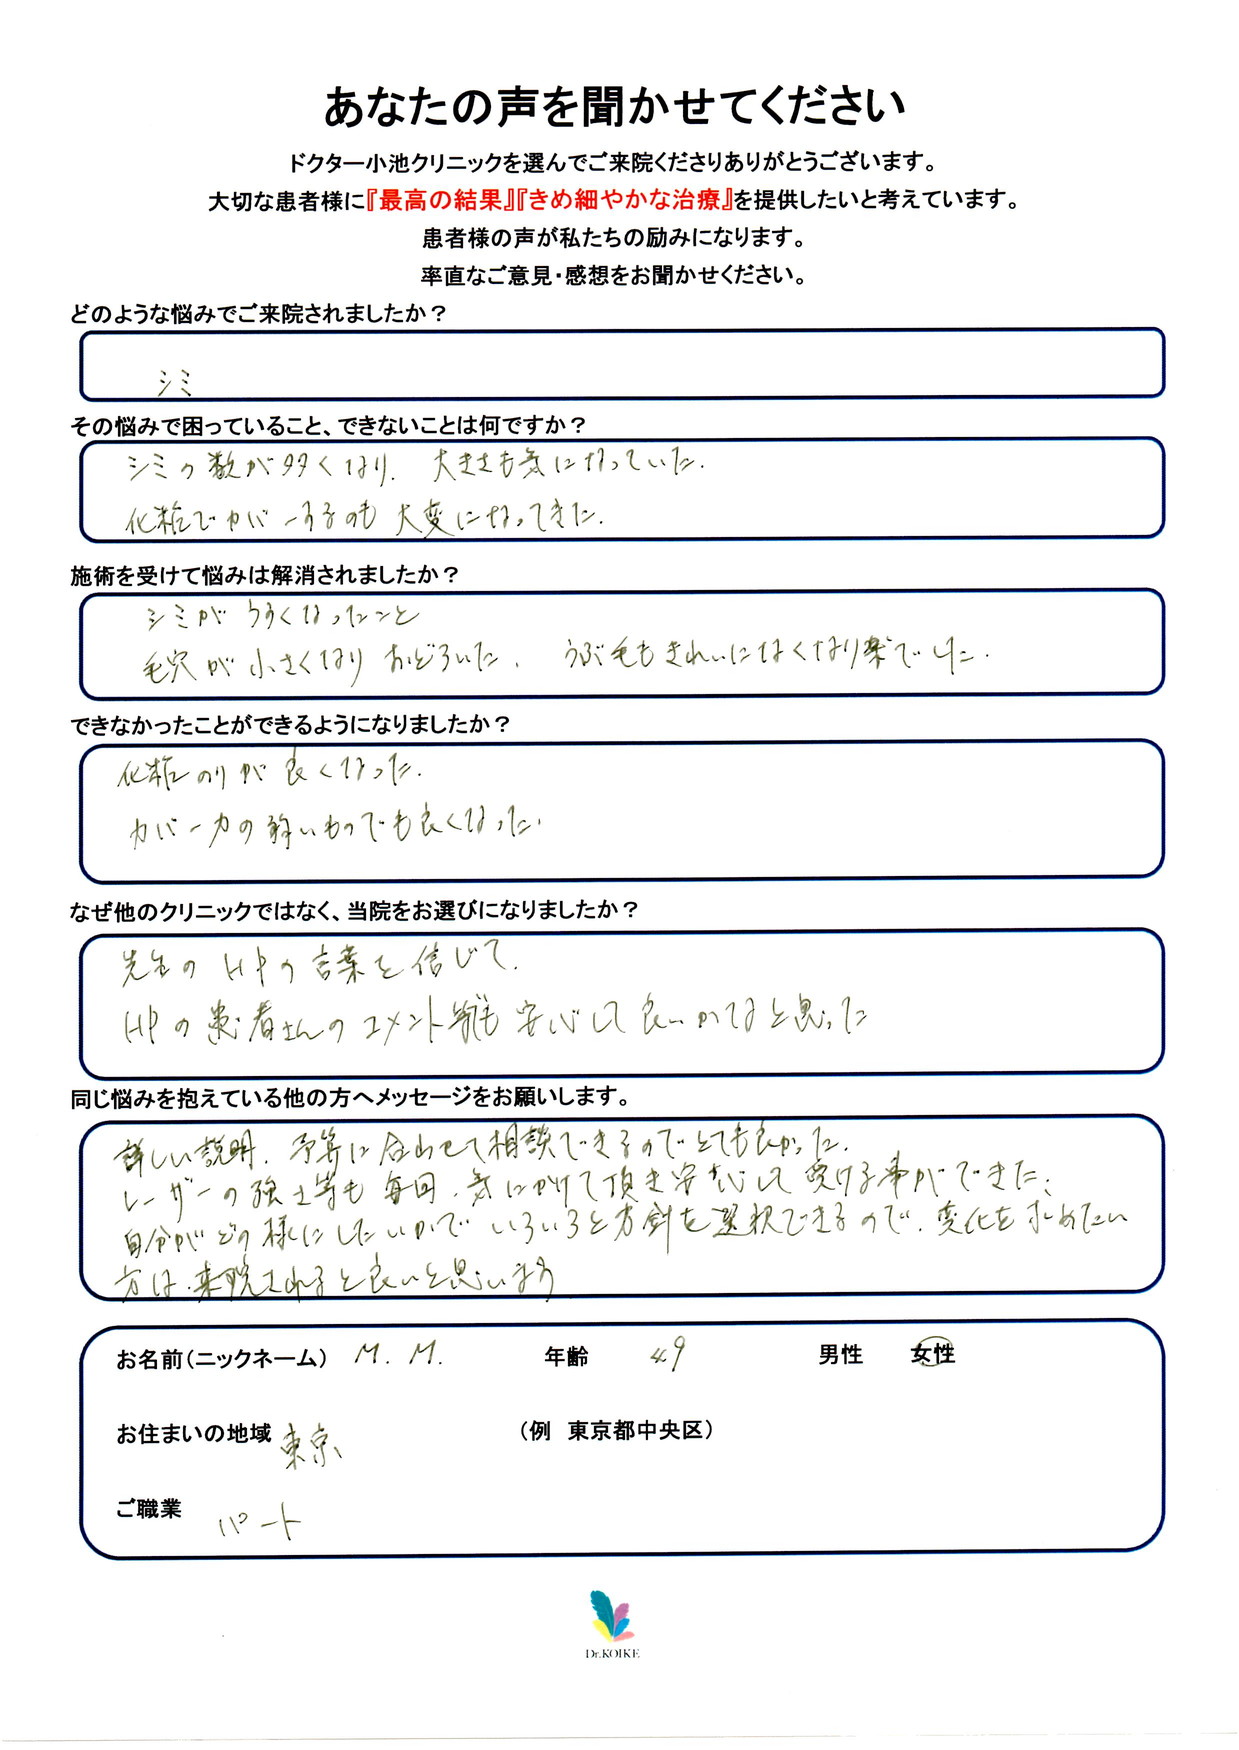 あなたの声を聞かせてください
ドクター小池クリニックを選んでご来院くださりありがとうございます。
大切な患者様に『最高の結果』『きめ細やかな治療』を提供したいと考えています。
患者様の声が私たちの励みになります。
率直なご意見・感想をお聞かせください。
どのような悩みでご来院されましたか？
シミ
その悩みで困っていること、できないことは何ですか？
シミの数が多くなり、大きさも気になっていた。
化粧でカバーするのも大変になってきた。
施術を受けて悩みは解消されましたか？
シミがうすくなったこと
毛穴が小さくなりおどろいた。うぶ毛もきれいになくなり楽でした。
できなかったことができるようになりましたか？
化粧のりが良くなった。
カバー力の弱いものでも良くなった。
なぜ他のクリニックではなく、当院をお選びになりましたか？
先生のHPの言葉を信じて。
HPの患者さんのコメント等も安心して良いかなと思った
同じ悩みを抱えている他の方へメッセージをお願いします。
詳しい説明、予算に合わせて相談できるのでとても良かった。
レーザーの強さ等も毎回、気にかけて頂き安心して受ける事ができた。
自分がどの様にしたいかでいろいろと方針を選択できるので、変化を求めたい
方は、来院されると良いと思います
お名前（ニックネーム） M.M. 年齢 49 男性 女性
お住まいの地域 東京 （例 東京都中央区）
ご職業 パート
Dr.KOIKE